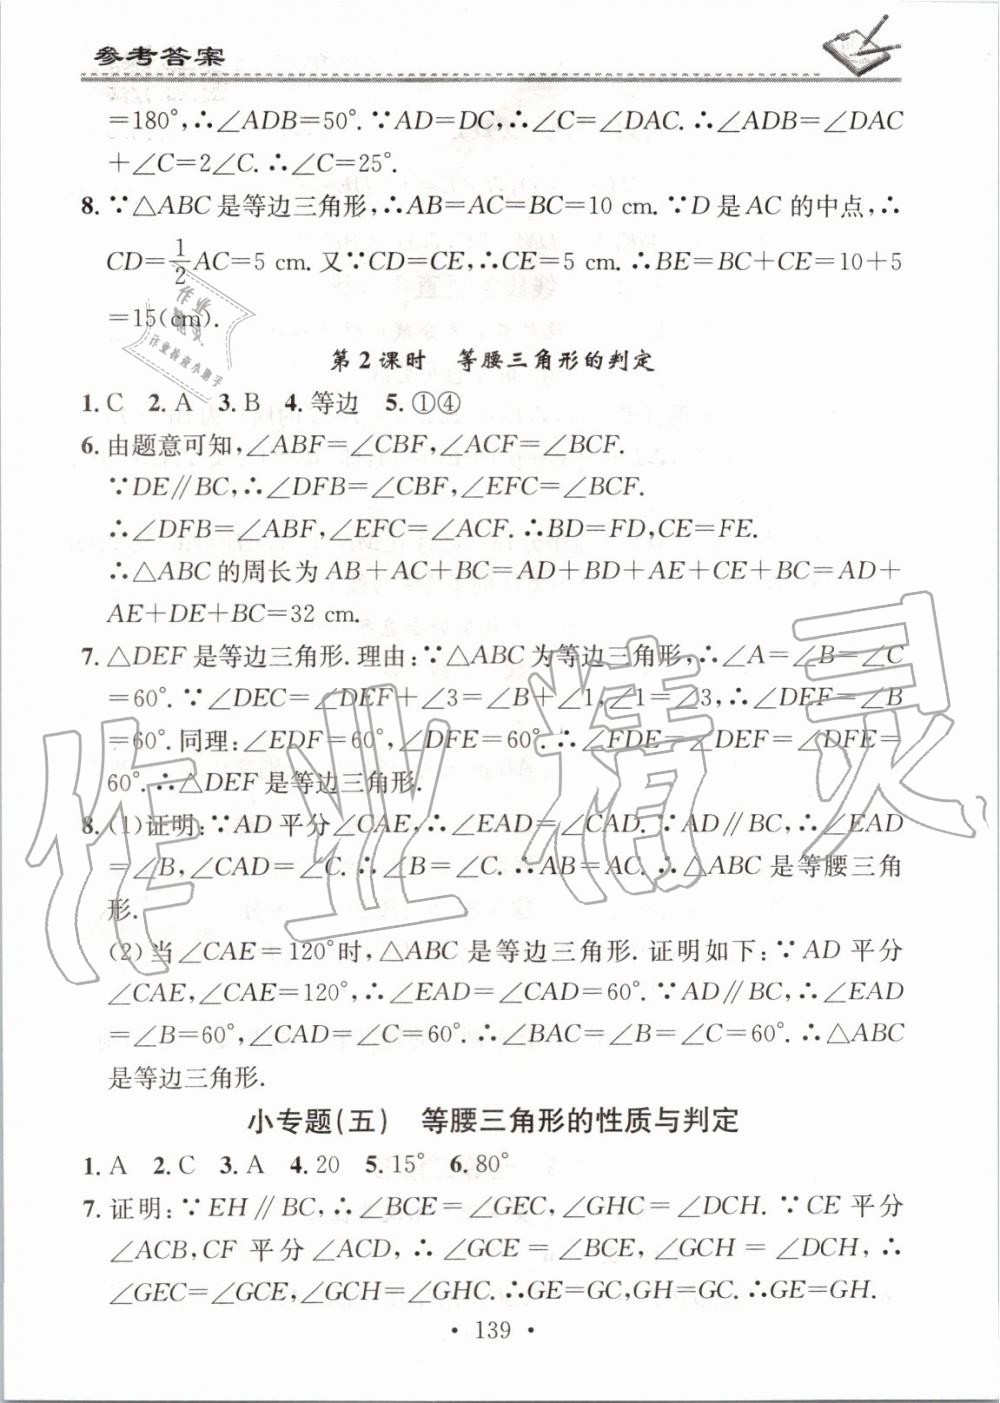 参考答案
=180°,∴∠ADB=50°.∵AD=DC,∴∠C=∠DAC.∴∠ADB=∠DAC
+∠C=2∠C.∴∠C=25°.
8. ∵△ABC是等边三角形,∴AB=AC=BC=10 cm.∵D是AC的中点,∴
CD=1/2AC=5 cm.又∵CD=CE,∴CE=5 cm.∴BE=BC+CE=10+5
=15(cm).
作业
作业检查小助手
第2课时 等腰三角形的判定
1. C 2. A 3. B 4. 等边 5. ①④
6. 由题意可知,∠ABF=∠CBF,∠ACF=∠BCF.
∵DE∥BC,∴∠DFB=∠CBF,∠EFC=∠BCF.
∴∠DFB=∠ABF,∠EFC=∠ACF.∴BD=FD,CE=FE.
∴△ABC的周长为AB+AC+BC=AD+BD+AE+CE+BC=AD+
AE+DE+BC=32 cm.
7. △DEF是等边三角形.理由:∵△ABC为等边三角形,∴∠A=∠B=∠C
=60°.∵∠DEC=∠DEF+∠3=∠B+∠1,∠1=∠3,∴∠DEF=∠B
=60°.同理:∠EDF=60°,∠DFE=60°.∴∠FDE=∠DEF=∠DFE=
60°.∴△DEF是等边三角形.
8. (1)证明:∵AD平分∠CAE,∴∠EAD=∠CAD.∵AD∥BC,∴∠EAD
=∠B,∠CAD=∠C.∴∠B=∠C.∴AB=AC.∴△ABC是等腰三角
形.
(2)当∠CAE=120°时,△ABC是等边三角形.证明如下:∵AD平分
∠CAE,∠CAE=120°,∴∠EAD=∠CAD=60°.∵AD∥BC,∴∠EAD
=∠B=60°,∠CAD=∠C=60°.∴∠BAC=∠B=∠C=60°.∴△ABC
是等边三角形.
作业精灵
小专题(五) 等腰三角形的性质与判定
1. A 2. C 3. A 4. 20 5. 15° 6. 80°
7. 证明:∵EH∥BC,∴∠BCE=∠GEC,∠GHC=∠DCH.∵CE平分
∠ACB,CF平分∠ACD,∴∠GCE=∠BCE,∠GCH=∠DCH,∴
∠GEC=∠GCE,∠GCH=∠GHC.∴GE=GC,GH=GC.∴GE=GH.
·139·